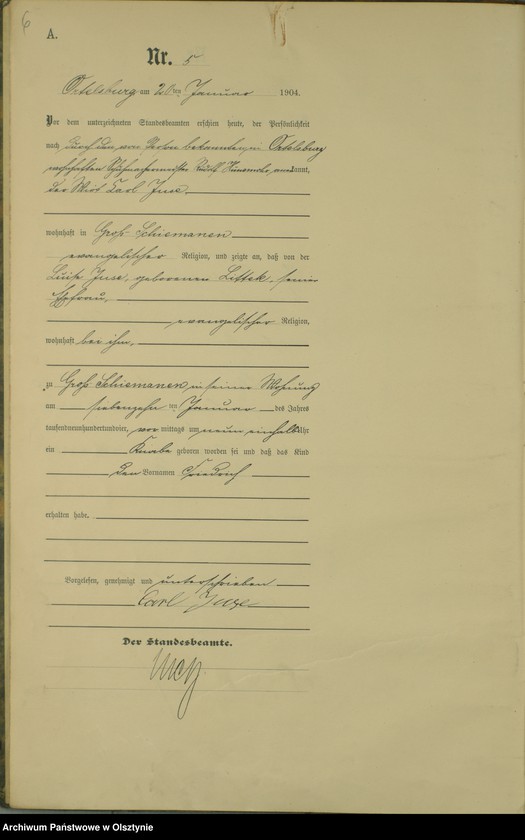 6
A.
Nr. 5
Ortelsburg am 20ten Januar 1904.
Vor dem unterzeichneten Standesbeamten erschien heute, der Persönlichkeit
nach durch den von Person bekannten in Ortelsburg
wohnhaften Schuhmachermeister anerkannt,
der Wirt Carl
wohnhaft in Groß Schiemanen
evangelischer Religion, und zeigte an, daß von der
Luise geborenen Littek, seiner
Ehefrau,
evangelischer Religion,
wohnhaft bei ihm,
zu Groß Schiemanen in seiner Wohnung
am siebenzehn ten Januar des Jahres
tausendneunhundertundvier, vor mittags um neun einhalb Uhr
ein Knabe geboren worden sei und daß das Kind
den Vornamen Friedrich
erhalten habe.
Vorgelesen, genehmigt und unterschrieben
Carl
Der Standesbeamte.
Archiwum Państwowe w Olsztynie